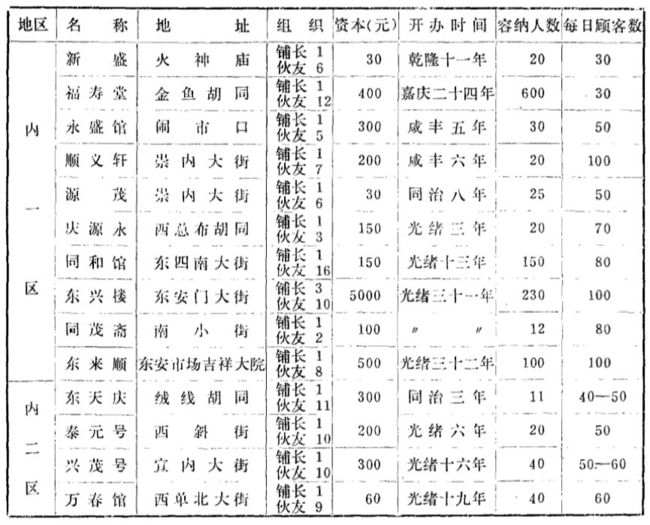 地区 名称 地址 组织 资本(元) 开办时间 容纳人数 每日顾客数
内一区
新盛 火神庙 铺长 1 伙友 6 30 乾隆十一年 20 30
福寿堂 金鱼胡同 铺长 1 伙友 12 400 嘉庆二十四年 600 30
永盛馆 闹市口 铺长 1 伙友 5 300 咸丰五年 30 50
顺义轩 崇内大街 铺长 1 伙友 7 200 咸丰六年 20 100
源茂 崇内大街 铺长 1 伙友 6 30 同治八年 25 50
庆源永 西总布胡同 铺长 1 伙友 3 150 光绪三年 20 70
同和馆 东四南大街 铺长 1 伙友 16 150 光绪十三年 150 80
东兴楼 东安门大街 铺长 3 伙友 10 5000 光绪三十一年 230 100
同茂斋 南小街 铺长 1 伙友 2 100 〃 〃 12 80
东来顺 东安市场吉祥大院 铺长 1 伙友 8 500 光绪三十二年 100 100
内二区
东天庆 绒线胡同 铺长 1 伙友 11 300 同治三年 11 40—50
泰元号 西斜街 铺长 1 伙友 10 200 光绪六年 20 50
兴茂号 宣内大街 铺长 1 伙友 10 300 光绪十六年 40 50—60
万春馆 西单北大街 铺长 1 伙友 9 60 光绪十九年 40 60